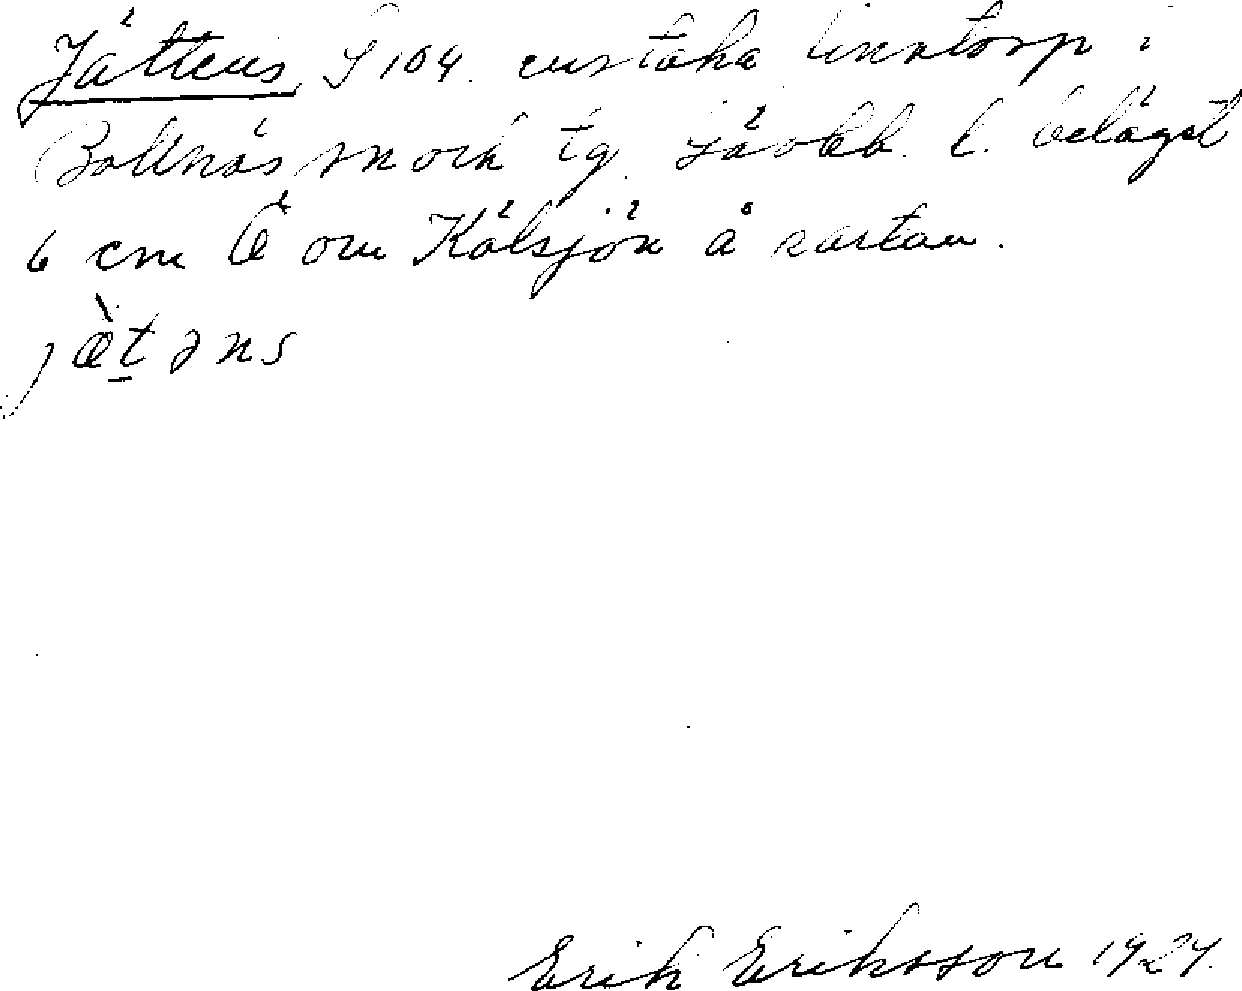 Jättens, S 104. enstaka finntorp i
Bollnäs sn och tg. Gävleb. l. beläget
6 cm Ö om Kälsjön å kartan.
jæ̀t̠əns
Erik Eriksson 1927.